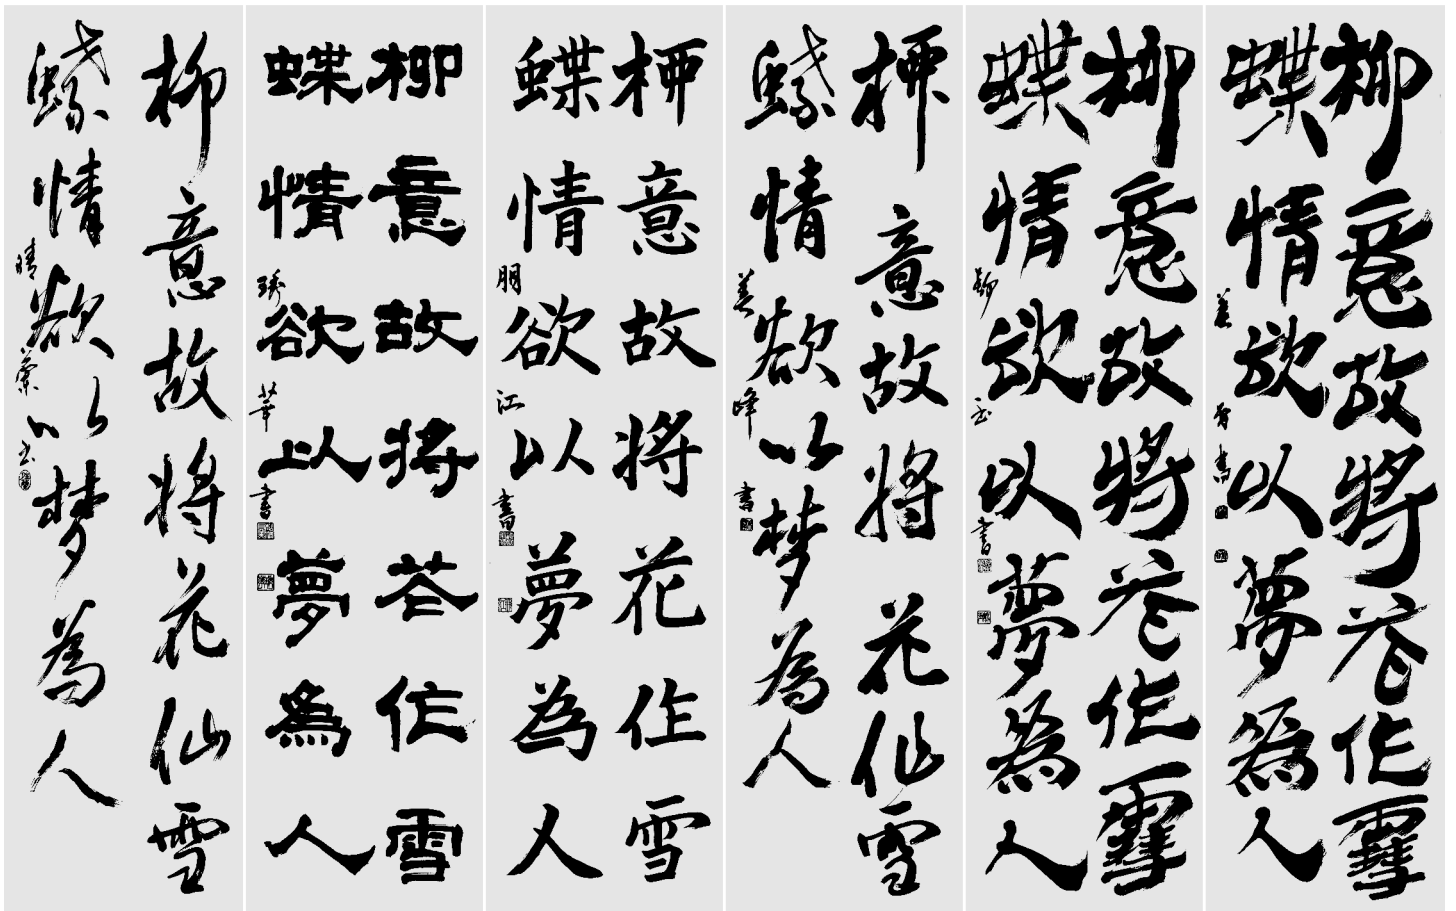 柳意故將花作雪
蝶情欲以夢為人
書
柳意故將花作雪
蝶情欲以夢為人
書
柳意故將花作雪
蝶情欲以夢為人
美峰書
柳意故將花作雪
蝶情欲以夢為人
朋江書
柳意故將花作雪
蝶情欲以夢為人
琇華書
柳意故將花作雪
蝶情欲以夢為人